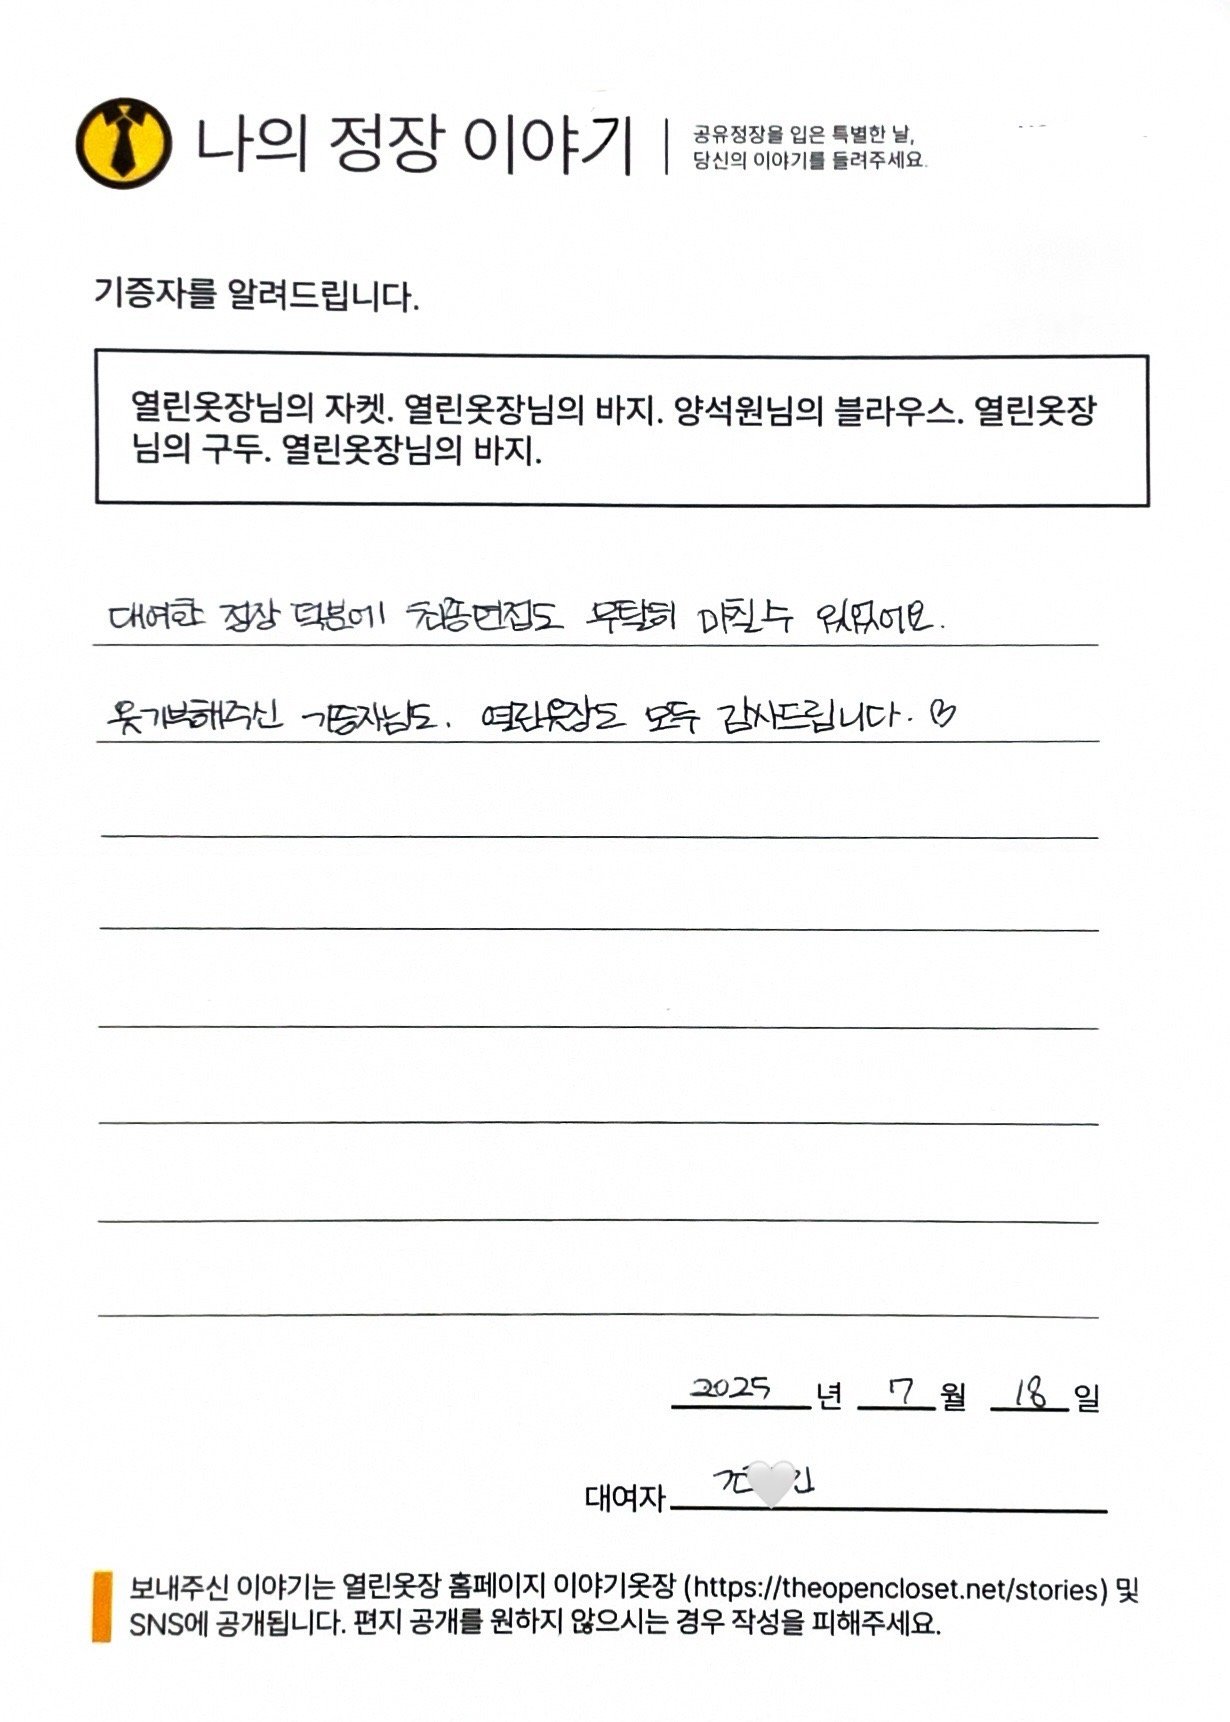 나의 정장 이야기
공유정장을 입은 특별한 날,
당신의 이야기를 들려주세요.
기증자를 알려드립니다.
열린옷장님의 자켓. 열린옷장님의 바지. 양석원님의 블라우스. 열린옷장
님의 구두. 열린옷장님의 바지.
대여한 정장 덕분에 최종면접도 무탈히 마칠수 있었어요.
옷기부해주신 기증자님도. 열린옷장도 모두 감사드립니다. ♡
2025 년 7 월 18 일
대여자
보내주신 이야기는 열린옷장 홈페이지 이야기옷장 (https://theopencloset.net/stories) 및
SNS에 공개됩니다. 편지 공개를 원하지 않으시는 경우 작성을 피해주세요.